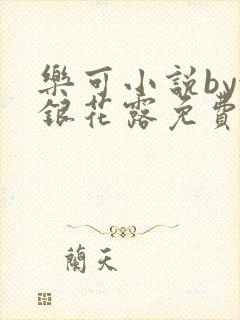 樂可小說by
銀花露免費
蘭天